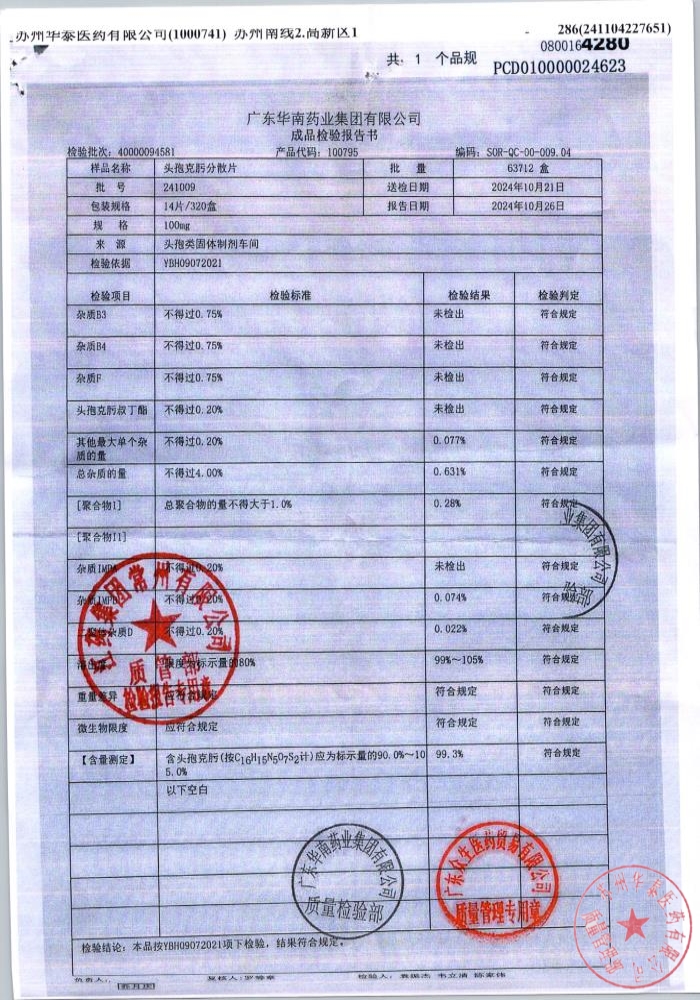 苏州华泰医药有限公司(1000741) 苏州南线2.高新区1
286(241104227651)
0800164280
共: 1 个品规
PCD010000024623
广东华南药业集团有限公司
成品检验报告书
检验批次: 40000094581 产品代码: 100795 编码: SOR-QC-00-009.04
样品名称 头孢克肟分散片 批 量 63712 盒
批 号 241009 送检日期 2024年10月21日
包装规格 14片/320盒 报告日期 2024年10月26日
规 格 100mg
来 源 头孢类固体制剂车间
检验依据 YBH09072021
检验项目 检验标准 检验结果 检验判定
杂质B3 不得过0.75% 未检出 符合规定
杂质B4 不得过0.75% 未检出 符合规定
杂质F 不得过0.75% 未检出 符合规定
头孢克肟叔丁酯 不得过0.20% 未检出 符合规定
其他最大单个杂 不得过0.20% 0.077% 符合规定
质的量
总杂质的量 不得过4.00% 0.631% 符合规定
[聚合物I] 总聚合物的量不得大于1.0% 0.28% 符合规定
[聚合物II]
杂质IMPA 不得过0.20% 未检出 符合规定
杂质IMPB 不得过0.20% 0.074% 符合规定
杂质D 不得过0.20% 0.022% 符合规定
限度为标示量的80% 99%～105% 符合规定
重量差异 应符合规定 符合规定 符合规定
微生物限度 应符合规定 符合规定 符合规定
【含量测定】 含头孢克肟(按C16H15N5O7S2计)应为标示量的90.0%～10 99.3% 符合规定
5.0%
以下空白
业集团有限公司
验部
集团常州有限公司
质管部
检验报告专用章
广东华南药业集团有限公司
质量检验部
广东众生医药贸易有限公司
质量管理专用章
苏州华泰医药有限公司
检验结论: 本品按YBH09072021项下检验，结果符合规定。
负责人: 复核人: 检验人: